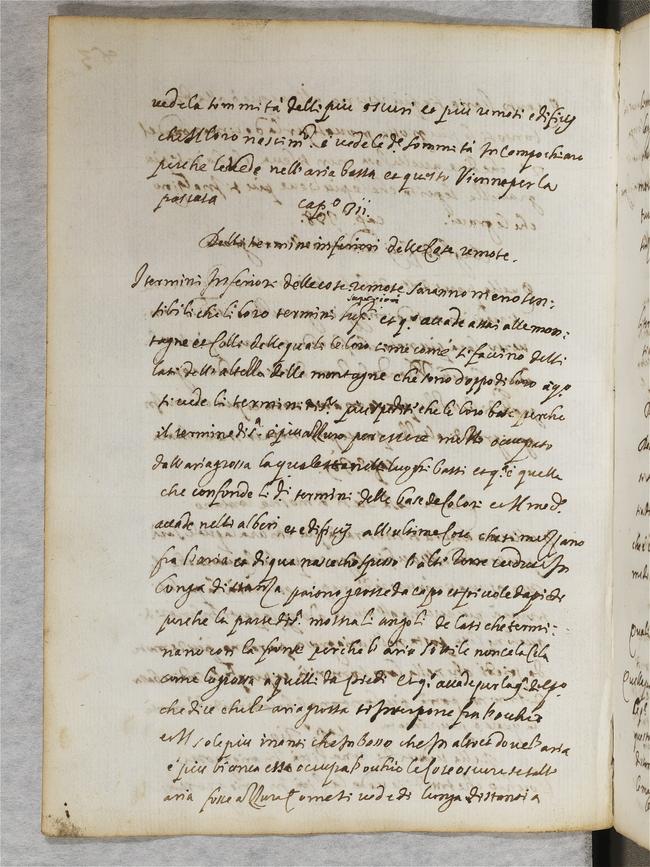 vede la sommità delli più oscuri et più remoti edifitij
che il loro nascim.to e vede le d.e sommità in campo chiaro
perche le vede nell'aria bassa et questo Vienne per la
passata cap.o VII.
Delli termine inferiori delle Cose remote.
I termini Inferiori delle cose remote saranno meno sen=
sibili che li loro termini sup.ri superiori et q.o accade assai alle mon=
tagne et Colli delle quali le loro cime come si faccino delli
lati dell'altezza delle montagne che sono doppo di loro a q.o
si vede li termini di s.a più spediti che le loro base perche
il termine di s.a è più oscuro per essere meno occupato
dall'aria grossa la quale sta nelli luoghi bassi et q.a è quella
che confonde li d.i termini delle base de Colori et il med.o
accade nelli alberi et edifitij all'ultime Cose che si mettano
fra l'aria et di qua nasce che spesso l'alti Torre vedute In
lunga distanza paiono grosse da capo et piccole da piedi
perche la parte di s.a mostra li angoli de lati che termi=
nano con la fronte perche l'aria sottile non cela la
come la grossa a quelli da piedi et q.o accade per la
che dice che l'aria grossa si Interpone fra l'occhio
et il sole più inanti che In basso che In alto et dove l'aria
è più bianca essa occupa l'occhio le Cose oscure se tall
aria fosse azzurra Come si vede di lunga distantia